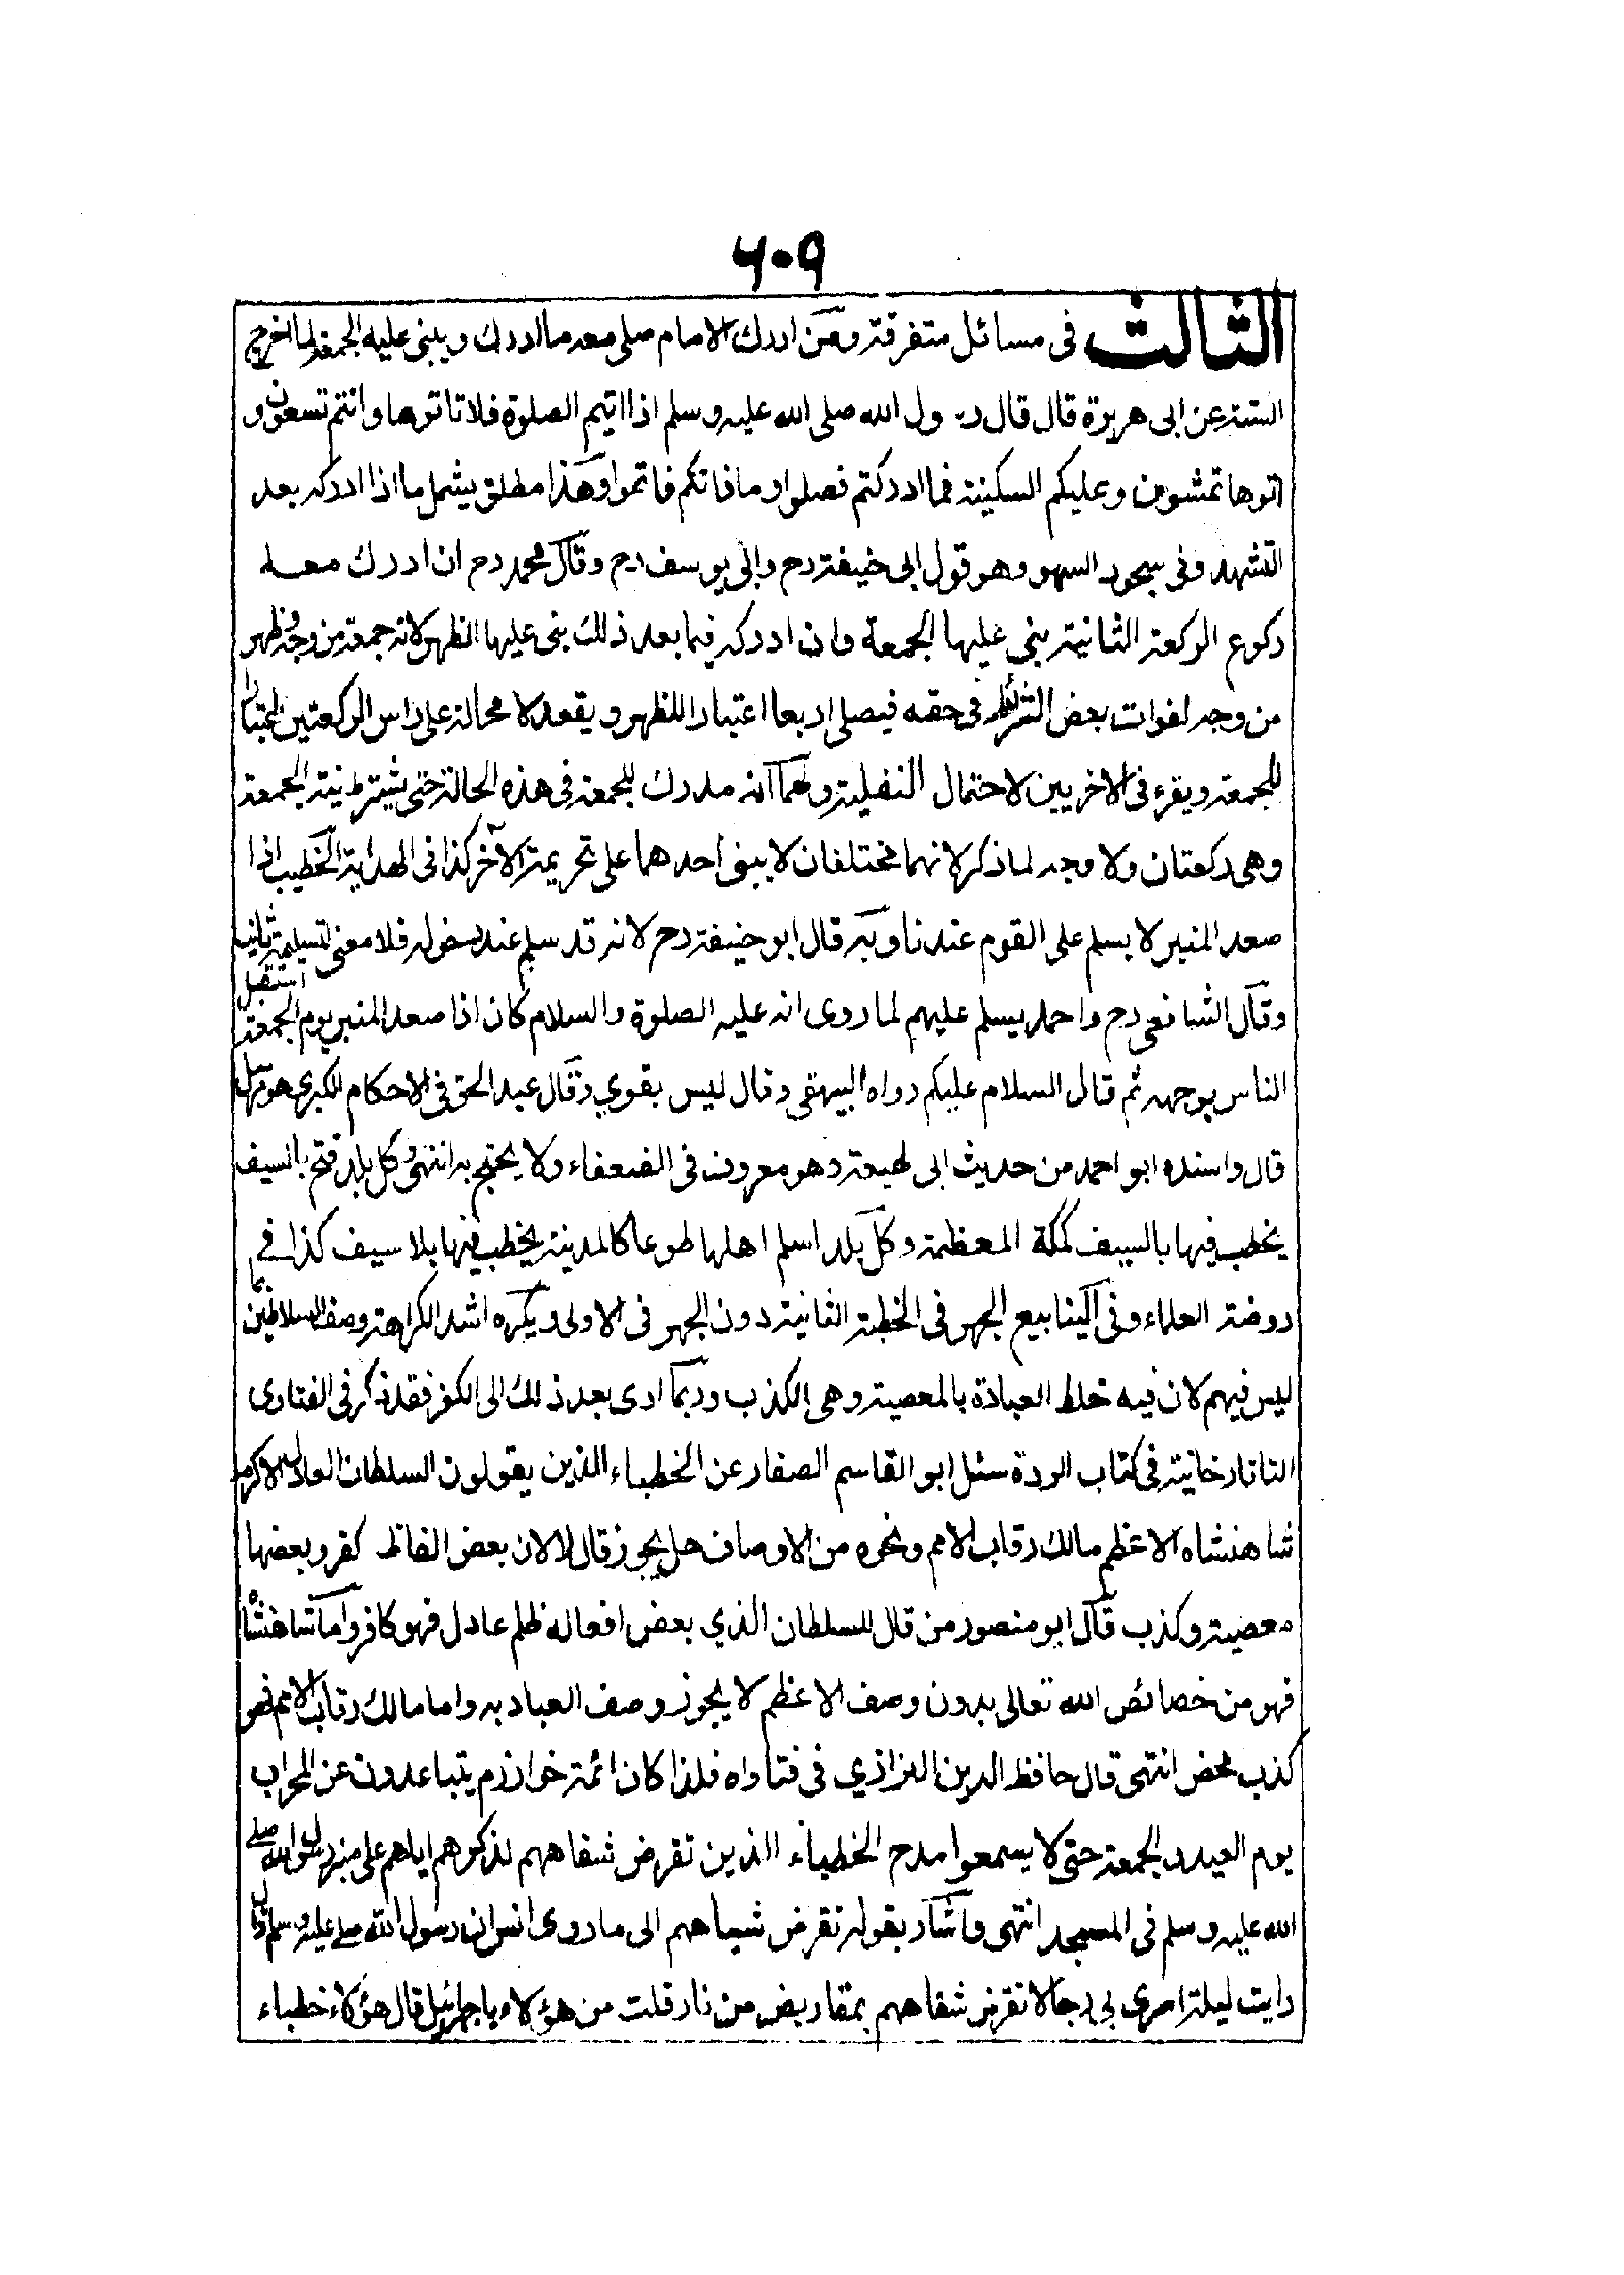 ٦٠٩
الثالث فى مسائل متفرقة ومن ادرك الامام صلى معه ما ادرك ويبنى عليه الجمعة لما اخرج
الستة عن ابى هريرة قال قال رسول الله صلى الله عليه وسلم اذا اتيتم الصلوة فلا تاتوها وانتم تسعون و
اتوها تمشون وعليكم السكينة فما ادركتم فصلوا وما فاتكم فاتموا وهذا مطلق يشمل ما اذا ادركه بعد
التشهد وفى سجود السهو وهو قول ابى حنيفة رح وابى يوسف رح وقال محمد رح ان ادرك معه
ركوع الركعة الثانية بنى عليها الجمعة وان ادركه فيما بعد ذلك بنى عليها الظهر لانه جمعة من وجه وظهر
من وجه لفوات بعض الشرائط فى حقه فيصلى اربعا اعتبارا للظهر ويقعد لا محالة على راس الركعتين اعتبارا
للجمعة ويقرء فى الاخريين لاحتمال النفلية ولهما انه مدرك للجمعة فى هذه الحالة حتى يشترط نية الجمعة
وهى ركعتان ولا وجه لما ذكر لانهما مختلفان لا يبنى احدهما على تحريمة الآخر كذا فى الهداية الخطيب اذا
صعد المنبر لا يسلم على القوم عندنا وبه قال ابو حنيفة رح لانه قد سلم عند دخوله فلا معنى لتسليمة ثانيه
وقال الشافعى رح واحمد يسلم عليهم لما روى انه عليه الصلوة والسلام كان اذا صعد المنبر يوم الجمعة استقبل
الناس بوجهه ثم قال السلام عليكم رواه البيهقى وقال ليس بقوي وقال عبد الحق فى الاحكام الكبرى هو مرسل
قال واسنده ابو احمد من حديث ابى لهيعة وهو معروف فى الضعفاء ولا يحتج به انتهى وكل بلد فتح بالسيف
يخطب فيها بالسيف كمكة المعظمة وكل بلد اسلم اهلها طوعا كالمدينة يخطب فيها بلا سيف كذا في
روضة العلماء وفى الينابيع الجهر فى الخطبة الثانية دون الجهر فى الاولى ويكره اشد الكراهة وصف السلاطين بما
ليس فيهم لان فيه خلط العبادة بالمعصية وهى الكذب وربما ادى بعد ذلك الى الكفر فقد ذكر فى الفتاوى
التاتارخانية فى كتاب الردة سئل ابو القاسم الصفار عن الخطباء الذين يقولون السلطان العادل الاكرم
شاهنشاه الاعظم مالك رقاب الامم ونحوه من الاوصاف هل يجوز قال لا لان بعض الفاظ كفر وبعضها
معصية وكذب قال ابو منصور من قال للسلطان الذي بعض افعاله ظلم عادل فهو كافر واما شاهنشاه
فهو من خصائص الله تعالى بدون وصف الاعظم لا يجوز وصف العباد به واما مالك رقاب الامم فهو
كذب محض انتهى قال حافظ الدين البزازي فى فتاواه فلذا كان ائمة خوارزم يتباعدون عن المحراب
يوم العيد والجمعة حتى لا يسمعوا مدح الخطباء الذين تقرض شفاههم لذكرهم اياهم على منبر رسول الله صلى
الله عليه وسلم فى المسجد انتهى واشار بقوله تقرض شفاههم الى ما روى انس ان رسول الله صلى عليه وسلم قال
رايت ليلة اسرى بى رجالا تقرض شفاههم بمقاريض من نار قلت من هؤلاء يا جبرائيل قال هؤلاء خطباء